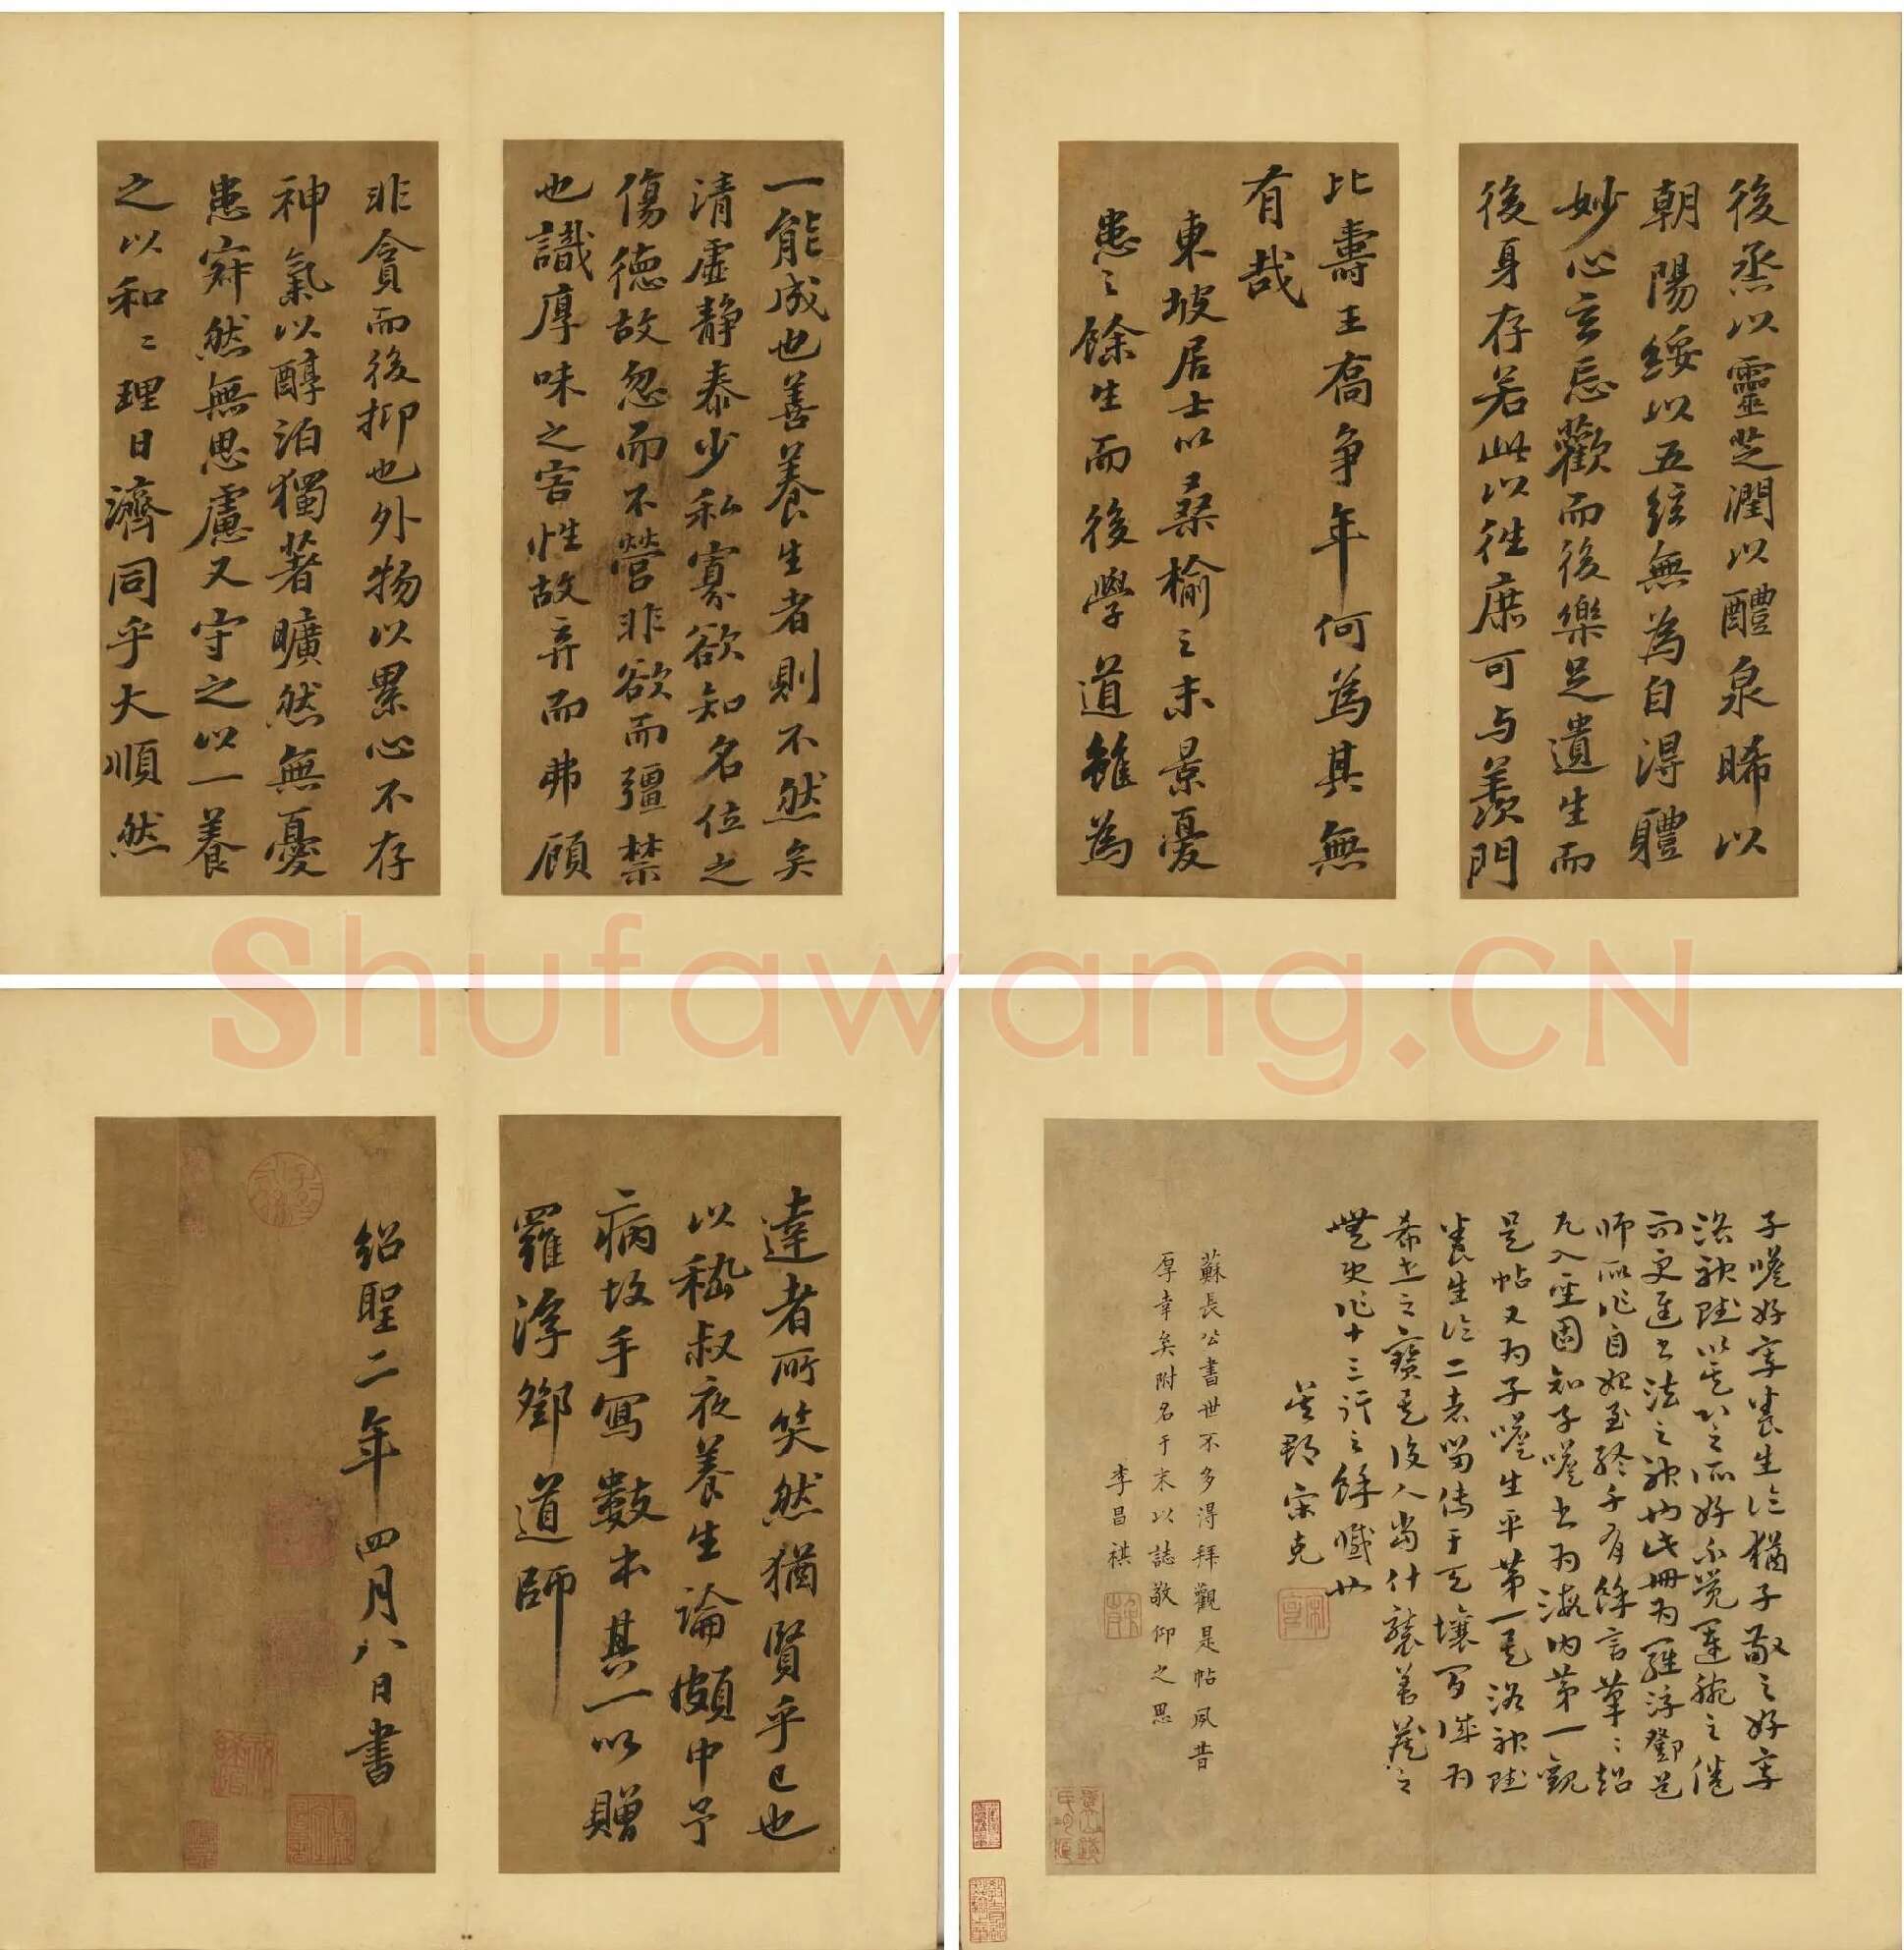 一能成也善養生者則不然矣
清虛靜泰少私寡欲知名位之
傷德故忽而不營非欲而彊禁
也識厚味之害性故弃而弗顧
非貪而後抑也外物以累心不存
神氣以醇泊獨著曠然無憂
患寂然無思慮又守之以一養
之以和〻理日濟同乎大順然
後烝以靈芝潤以醴泉晞以
朝陽綏以五絃無為自得體
妙心玄忘歡而後樂足遺生而
後身存若此以往庶可与羨門
比壽王喬爭年何為其無
有哉
東坡居士以桑榆之末景憂
患之餘生而後學道雖為
達者所笑然猶賢乎已也
以嵇叔夜養生論頗中予
病故手寫數本其一以贈
羅浮鄧道師
紹聖二年四月八日書
子瞻好寫養生論猶子敬之好寫
洛神賦以其心之所好不覺運腕之倦
而更進書法之神也此冊為羅浮鄧道
師所作自始至終千有餘言筆〻超
凡入聖固知子瞻書為海內第一觀
是帖又為子瞻生平第一若洛神賦
養生論二者留傳于天壤間誠為
希世之寶也後人當什襲善藏之
無使作十三行之餘憾也
吳郡宋克
蘇長公書世不多得拜觀是帖夙昔
厚幸矣附名于末以誌敬仰之思
李昌祺
Shufawang.CN